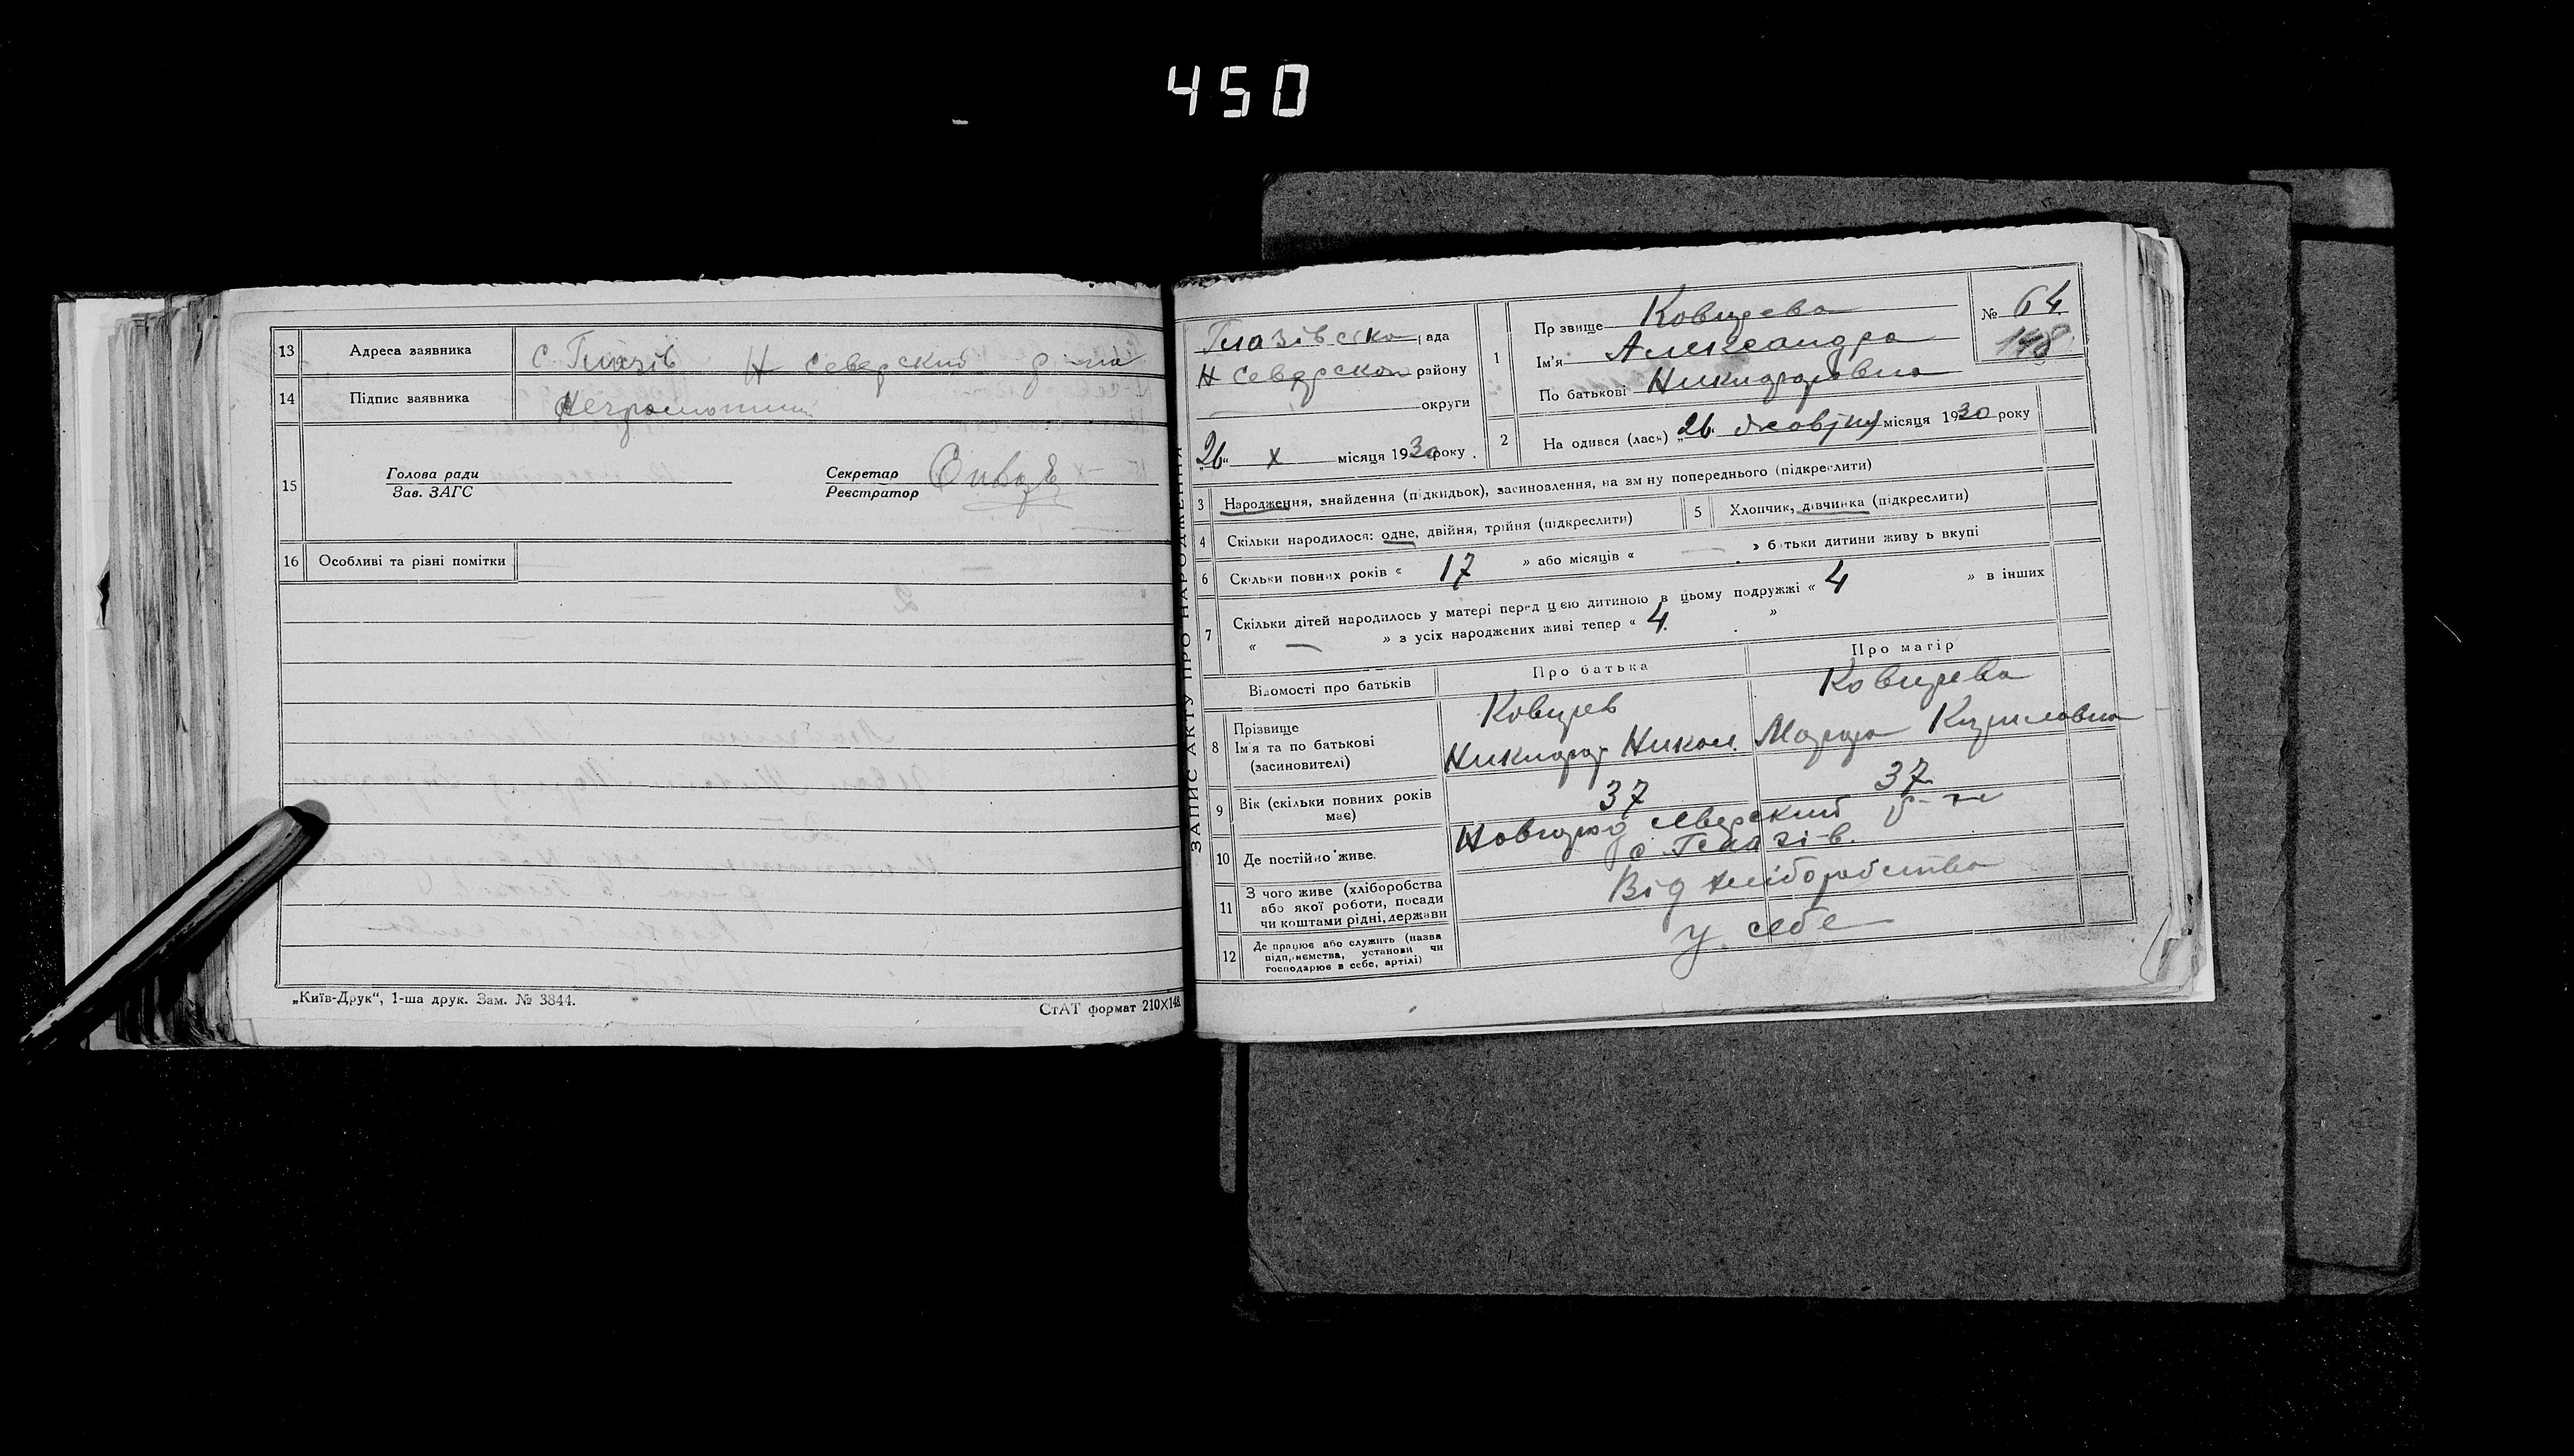 450
13 Адреса заявника с. Глазів Н Северский р-на
14 Підпис заявника Неграмотний
15 Голова ради
Зав. ЗАГС
Секретар
Реєстратор
16 Особливі та різні помітки
„Київ-Друк“, 1-ша друк. Зам. № 3844.
СтАТ формат 210×148
ЗАПИС АКТУ ПРО НАРОДЖЕННЯ
Глазівсіка рада
Н Северскои району
округи
„26“ X місяця 1930 року.
№ 64
148
1 Прізвище
Ім'я Александра
По батькові Никифоровна
2 На одився (лася) „26“ жовтня місяця 1930 року
3 Народження, знайдення (підкидьок), засиновлення, на зміну попереднього (підкреслити)
4 Скільки народилося: одне, двійня, трійня (підкреслити)
5 Хлопчик, дівчинка (підкреслити)
6 Скільки повних років « 17 » або місяців « — » батьки дитини живуть вкупі
7 Скільки дітей народилось у матері перед цією дитиною в цьому подружжі « 4 » в інших
« — » з усіх народжених живі тепер « 4 »
Відомості про батьків Про батька Про матір
8 Прізвище
Ім'я та по батькові
(засиновителі)
Никифор Никол.
Мария Кириловна
9 Вік (скільки повних років
має)
37 37
10 Де постійно живе.
Новгород Северский р-на
с. Глазів.
11 З чого живе (хліборобства
або якої роботи, посади
чи коштами рідні, держави
Від хліборобства
12 Де працює або служить (назва
підприємства, установи чи
господарює в себе, артілі)
у себе